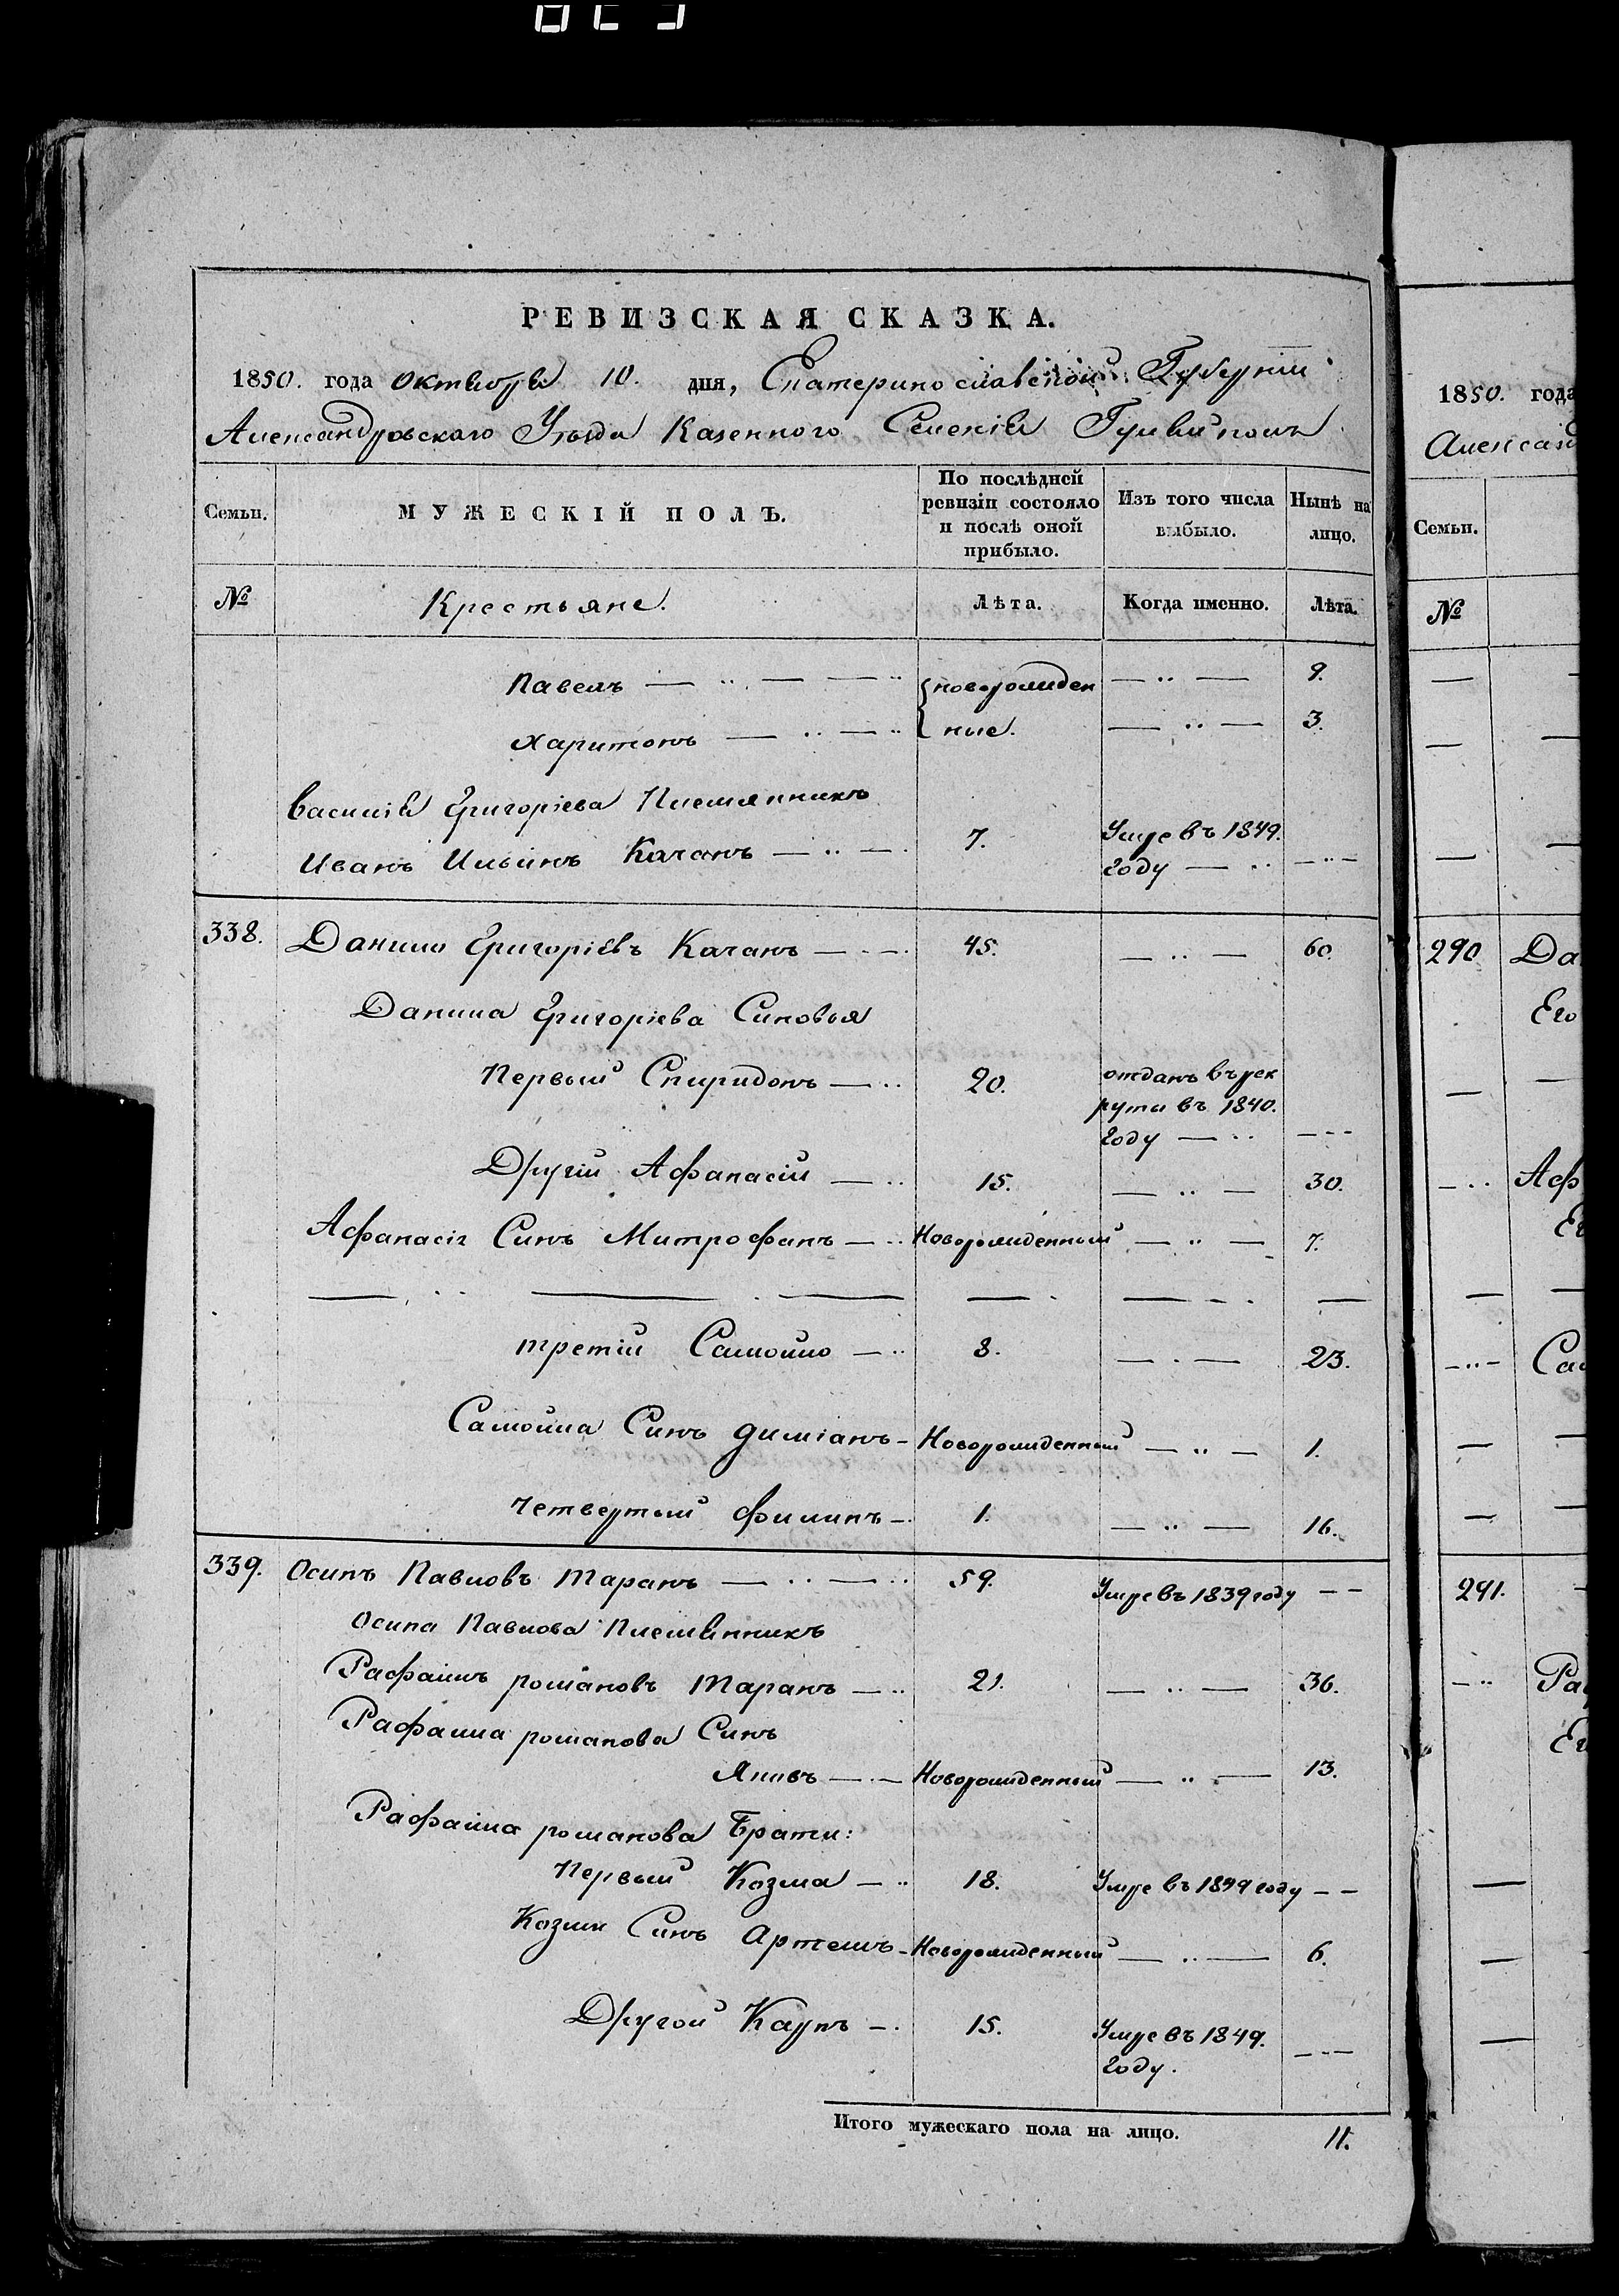 РЕВИЗСКАЯ СКАЗКА.
1850. года октября 10. дня, Екатеринославской Губерніи
Александровскаго Уезда Казенного Селенія Гуляйполя
Семьи. МУЖЕСКІЙ ПОЛЪ. По послѣдней ревизіи состояло и послѣ оной прибыло. Изъ того числа выбыло. Нынѣ на лицо.
№ Крестьяне. Лѣта. Когда именно. Лѣта.
Павелъ новорожден 9.
Харитонъ ные. 3.
Василія Григоріева Племянникъ
Иванъ Ильинъ Качанъ 7. Умре въ 1849. году
338. Данило Григоріевъ Качанъ 45. 60.
Данила Григоріева Синовья
Первый Спиридонъ 20. отданъ въ рек
руты въ 1840.
году
Другій Афанасій 15. 30.
Афанасія Синъ Митрофанъ Новорожденный 7.
третій Самойло 8. 23.
Самойла Синъ Диміанъ Новорожденный 1.
Четвертый Филипъ 1. 16.
339. Осипъ Павловъ Таранъ 59. Умре въ 1839 году
Осипа Павлова Племянникъ
Рафаилъ романовъ Таранъ 21. 36.
Рафаила романова Синъ
Яковъ Новорожденный 13.
Рафаила романова Брати:
Первый Козма 18. Умре въ 1849 году
Козми Синъ Артемъ Новорожденный 6.
Другой Карпъ 15. Умре въ 1849.
году.
Итого мужескаго пола на лицо. 11.
1850. года
Александ
Семьи.
№
290 Да
Его
Аф
Ег
Сам
291.
Раф
Ег